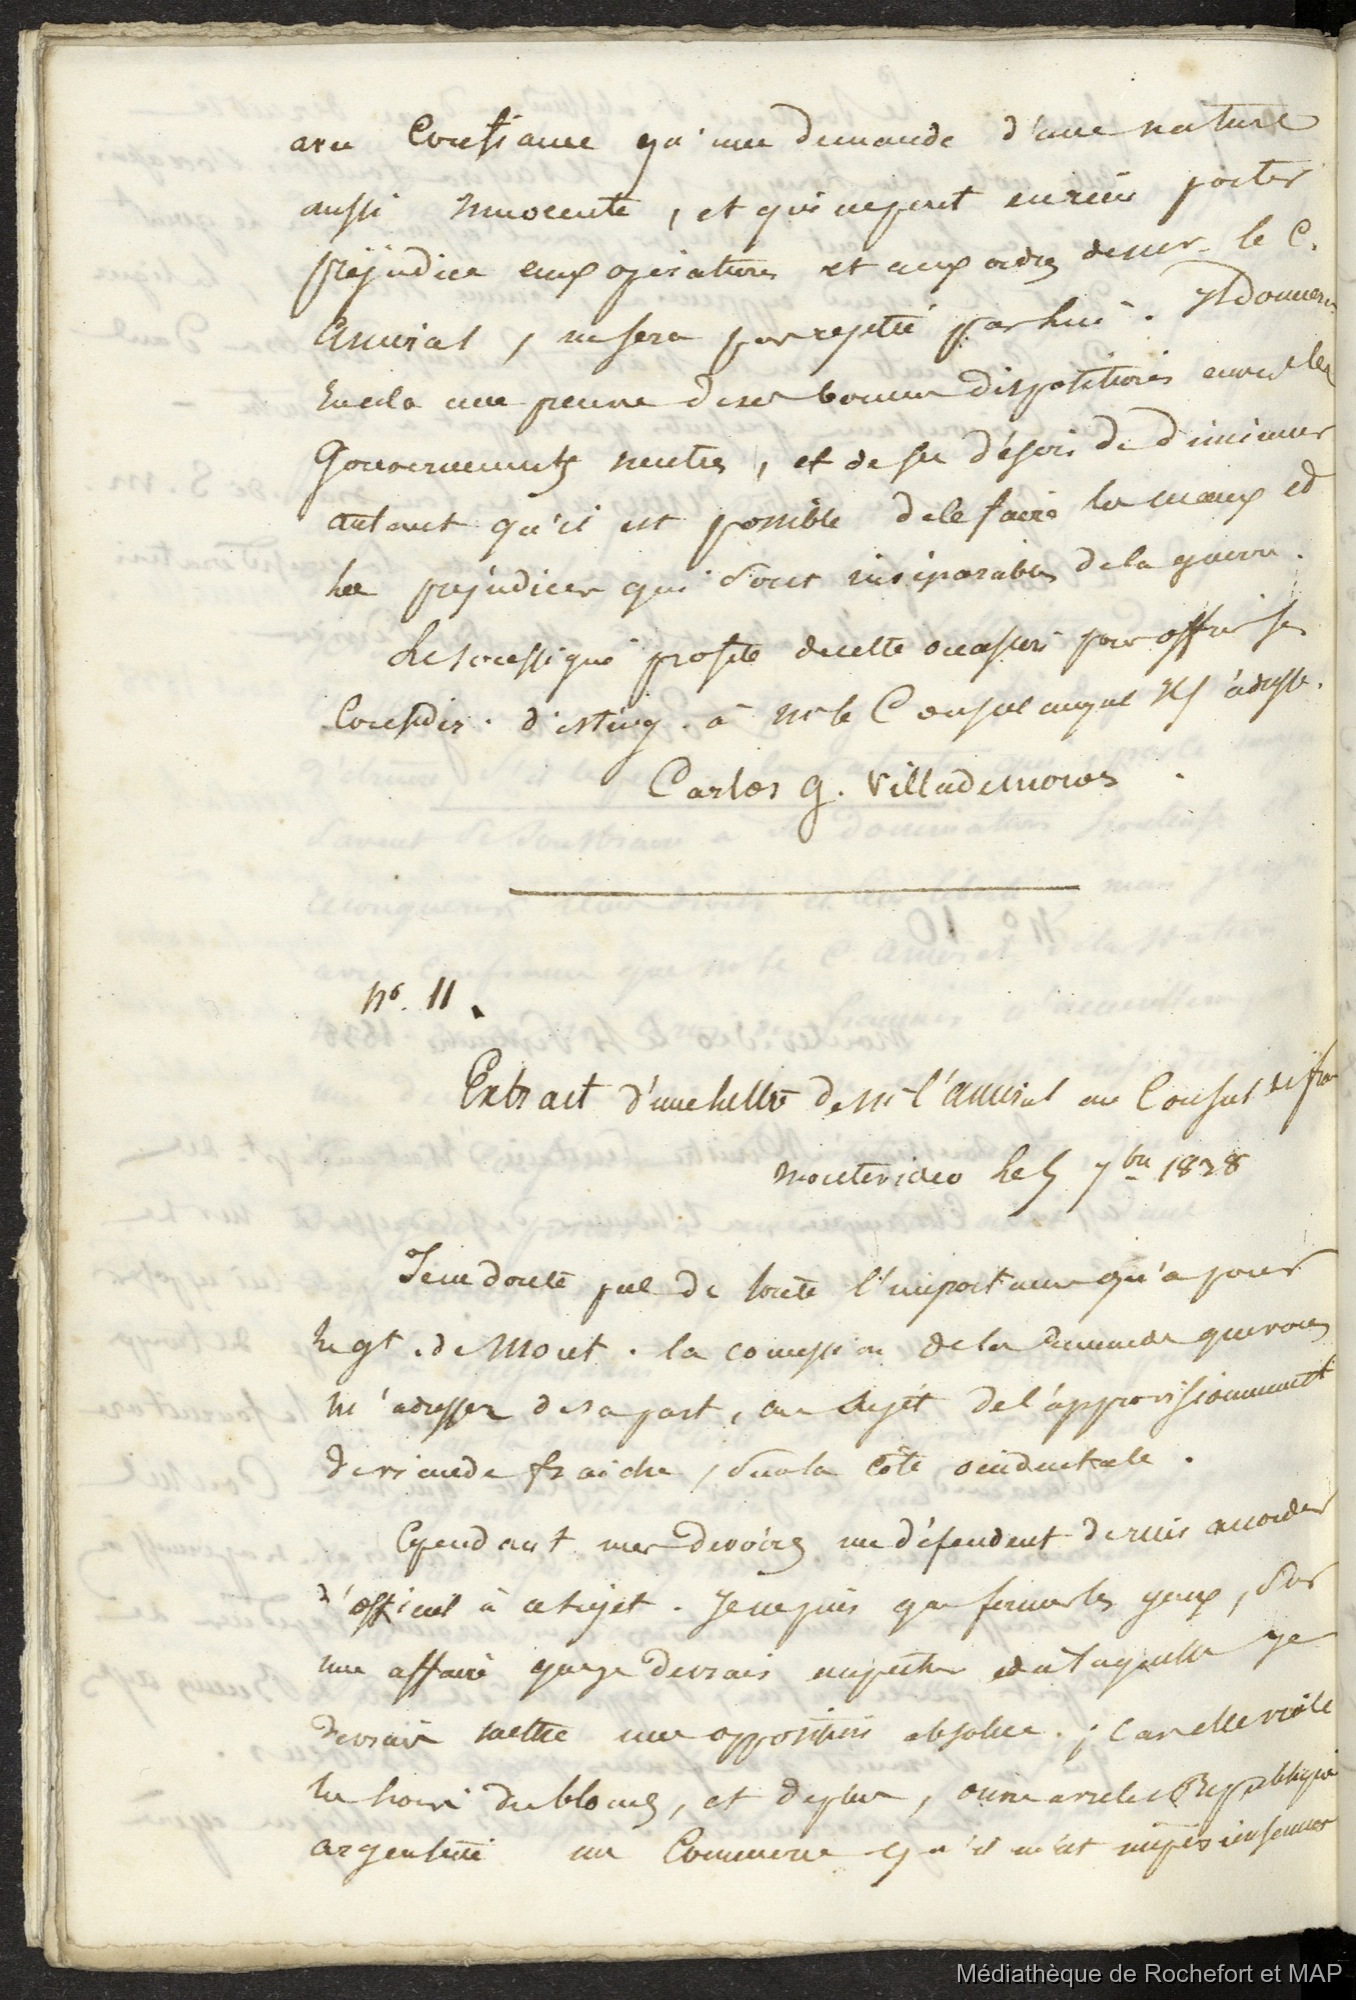 avec Confiance qu'une demande d'une nature
aussi innocente, et qui ne peut en rien porter
préjudice aux opérations et aux ordres de mr. le C.
Amiral, ne sera pas rejetté par lui. Il donnera
en cela une preuve de ses bonnes dispositions envers les
Gouvernements neutres, et de son désir de diminuer
autant qu'il est possible de le faire les maux et
les préjudices qui sont inséparables de la guerre.
Le soussigné profite de cette occasion pour offrir ses
Considér. disting. à Mr le Consul auquel il s'adresse.
Carlos G. Villademoros
No. 11.
Extrait d'une lettre de Mr l'amiral au Consul de fr
Montevideo le 5 7bre 1838
Je ne doute pas de toute l'importance qu'a pour
le gt. de Mont. la concession de la demande que vous
m'adressez de sa part, au sujet de l'approvisionnement
de viande fraiche, sur la côte occidentale.
Cependant mes devoirs me défendent de rien accorder
d'officiel à ce sujet. Je ne puis que fermer les yeux, sur
une affaire que je devrais empecher et à laquelle je
devrais mettre une opposition absolue. ; Car elle viole
les lois du blocus, et de plus, ouvre avec la République
argentine un Commerce qu'il m'est impérieusement